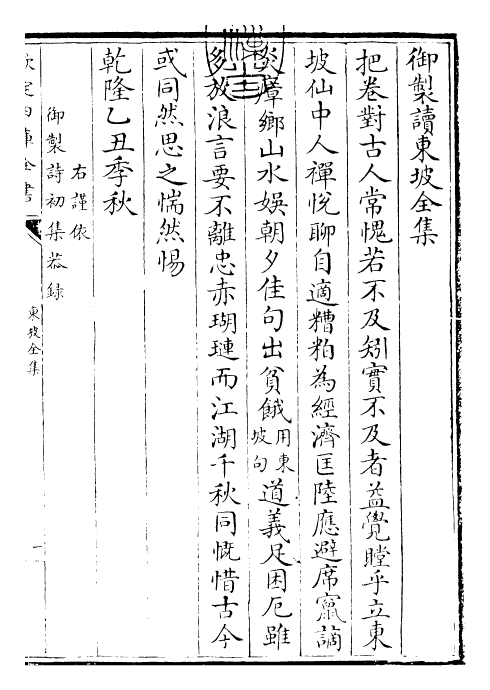 御製讀東坡全集
把卷對古人常愧若不及矧實不及者益覺瞠乎立東
坡仙中人禪悅聊自適糟粕為經濟匡陸應避席竄謫
炎瘴鄉山水娛朝夕佳句出貧餓用東坡句道義足困厄雖
多放浪言要不離忠赤瑚璉而江湖千秋同慨惜古今
或同然思之惴然惕
乾隆乙丑季秋
右謹依
御製詩初集恭錄
欽定四庫全書
東坡全集
一